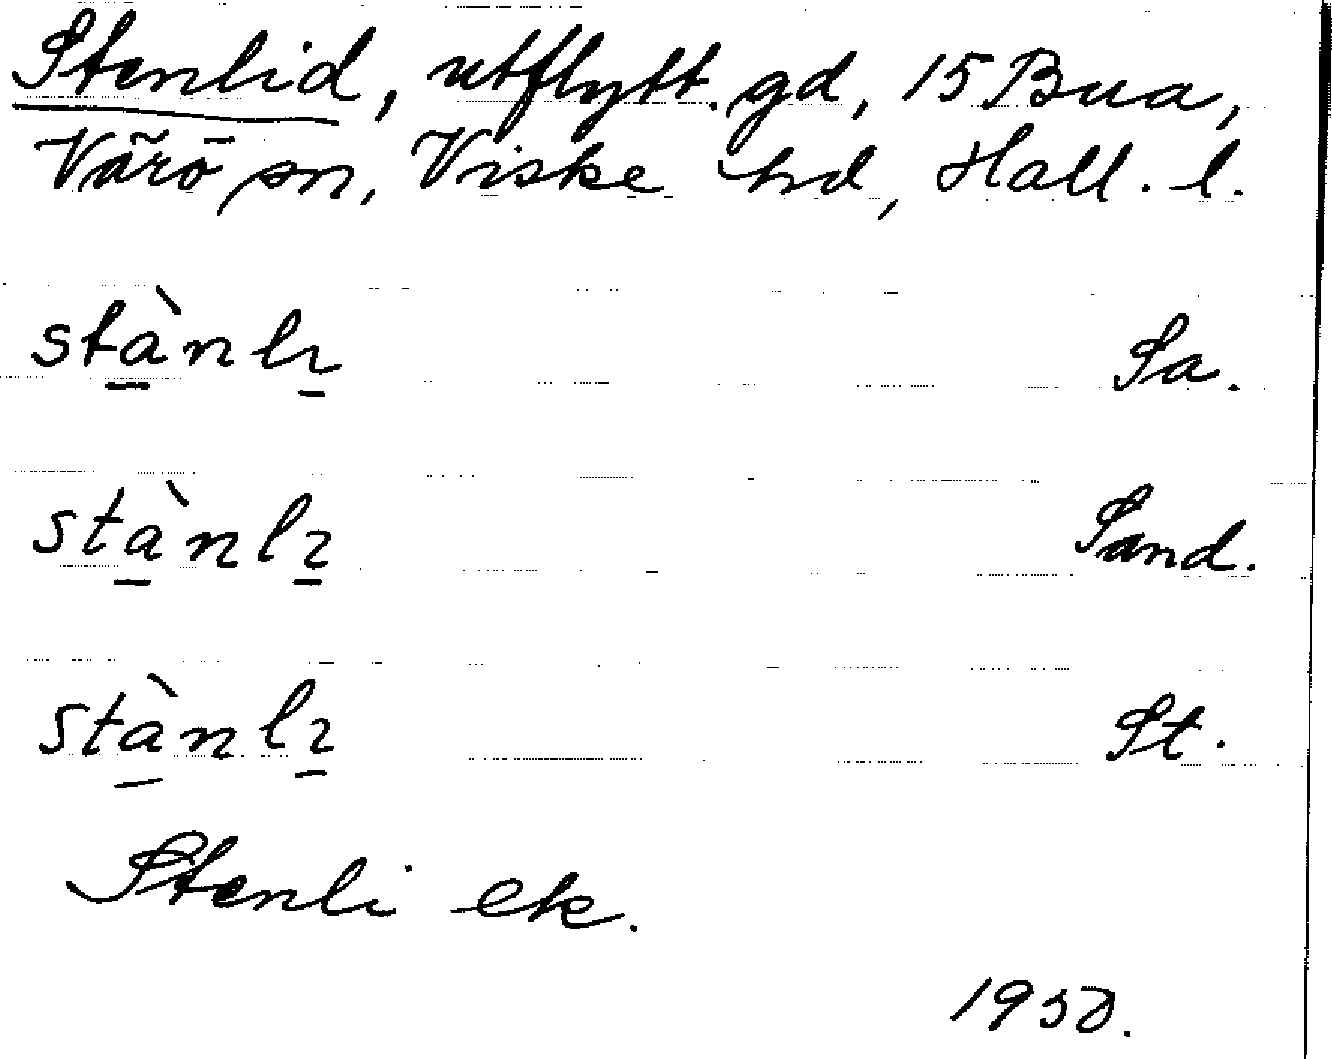 Stenlid, utflytt. gd, 15 Bua,
Värö sn, Viske hd, Hall. l.
stànlɪ Sa.
stànlɪ Sand.
stànlɪ St.
Stenli ek.
1950.